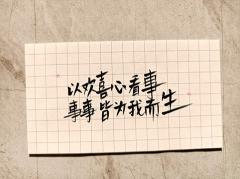 以欢喜心看事
事事皆为我而生